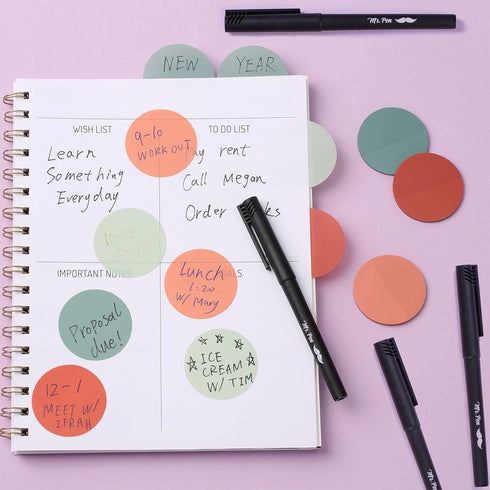 Mr. Pen
NEW YEAR
WISH LIST
Learn
Something
Everyday
9-10
WORK OUT
TO DO LIST
Pay rent
Call Megan
Order
10-12
STUDIO
IMPORTANT NOTES
Proposal
due!
12-1
MEET W/
IFRAH
Lunch
1:20
W/ Mary
ICE
CREAM
W/ TIM
Mr. Pen
Mr. Pen
Mr. Pen